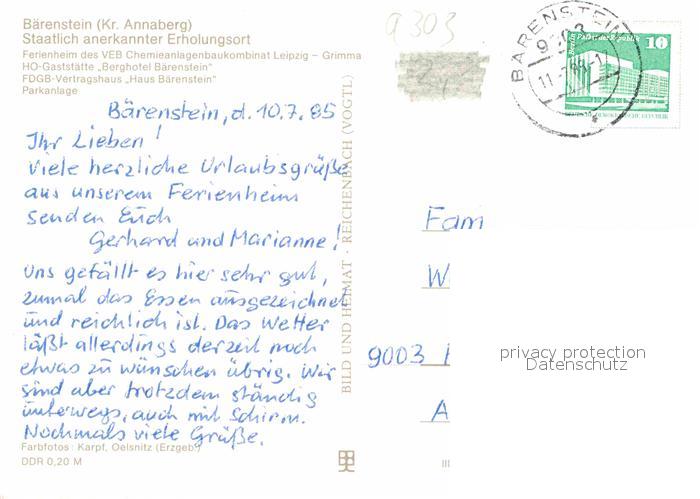 Bärenstein (Kr. Annaberg)
Staatlich anerkannter Erholungsort
Ferienheim des VEB Chemieanlagenbaukombinat Leipzig – Grimma
HO-Gaststätte „Berghotel Bärenstein"
FDGB-Vertragshaus „Haus Bärenstein"
Parkanlage
Bärenstein, d. 10.7.85
Ihr Lieben!
Viele herzliche Urlaubsgrüße
aus unserem Ferienheim
senden Euch
Gerhard und Marianne!
Uns gefällt es hier sehr gut,
zumal das Essen ausgezeichnet
und reichlich ist. Das Wetter
läßt allerdings derzeit noch
etwas zu wünschen übrig. Wir
sind aber trotzdem ständig
unterwegs, auch mit Schirm.
Nochmals viele Grüße.
Farbfotos: Karpf, Oelsnitz (Erzgeb.)
DDR 0,20 M
BILD UND HEIMAT · REICHENBACH (VOGTL)
III
9303
BÄRENSTEIN
9303
10
Fam
W
9003
A
privacy protection
Datenschutz